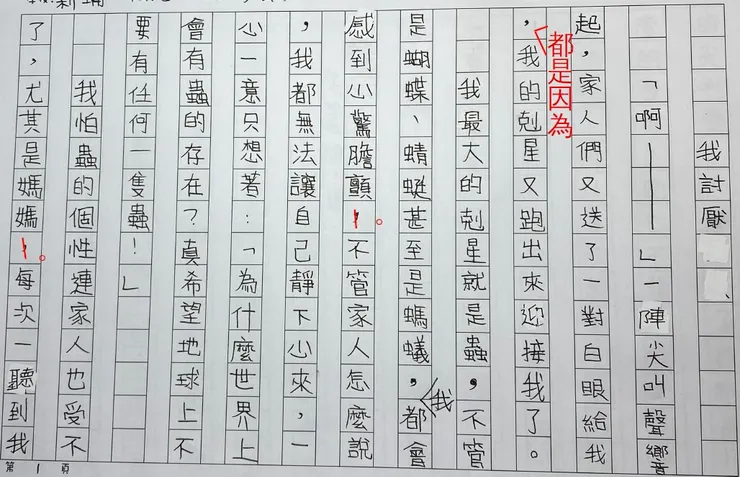 我討厭
「啊——」一陣尖叫聲響
起，家人們又送了一對白眼給我
，都是因為我的剋星又跑出來迎接我了。
我最大的剋星就是蟲，不管
是蝴蝶、蜻蜓甚至是螞蟻，我都會
感到心驚膽顫。不管家人怎麼說
，我都無法讓自己靜下心來，一
心一意只想著：「為什麼世界上
會有蟲的存在？真希望地球上不
要有任何一隻蟲！」
我怕蟲的個性連家人也受不
了，尤其是媽媽。每次一聽到我
第1頁